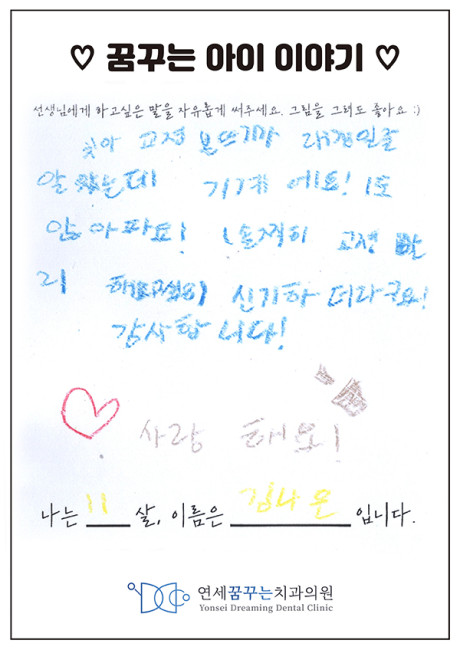 ♡ 꿈꾸는 아이 이야기 ♡
선생님에게 하고싶은 말을 자유롭게 써주세요. 그림을 그려도 좋아요 :)
치아 교정 본뜨기가
알 았는데 기계 에요! 1도
안 아파요! (솔찍히 교정 빨
리 신기하 더라구요!
감사합 니다!
사랑 해요!
나는 11 살, 이름은 김나은 입니다.
연세꿈꾸는치과의원
Yonsei Dreaming Dental Clinic